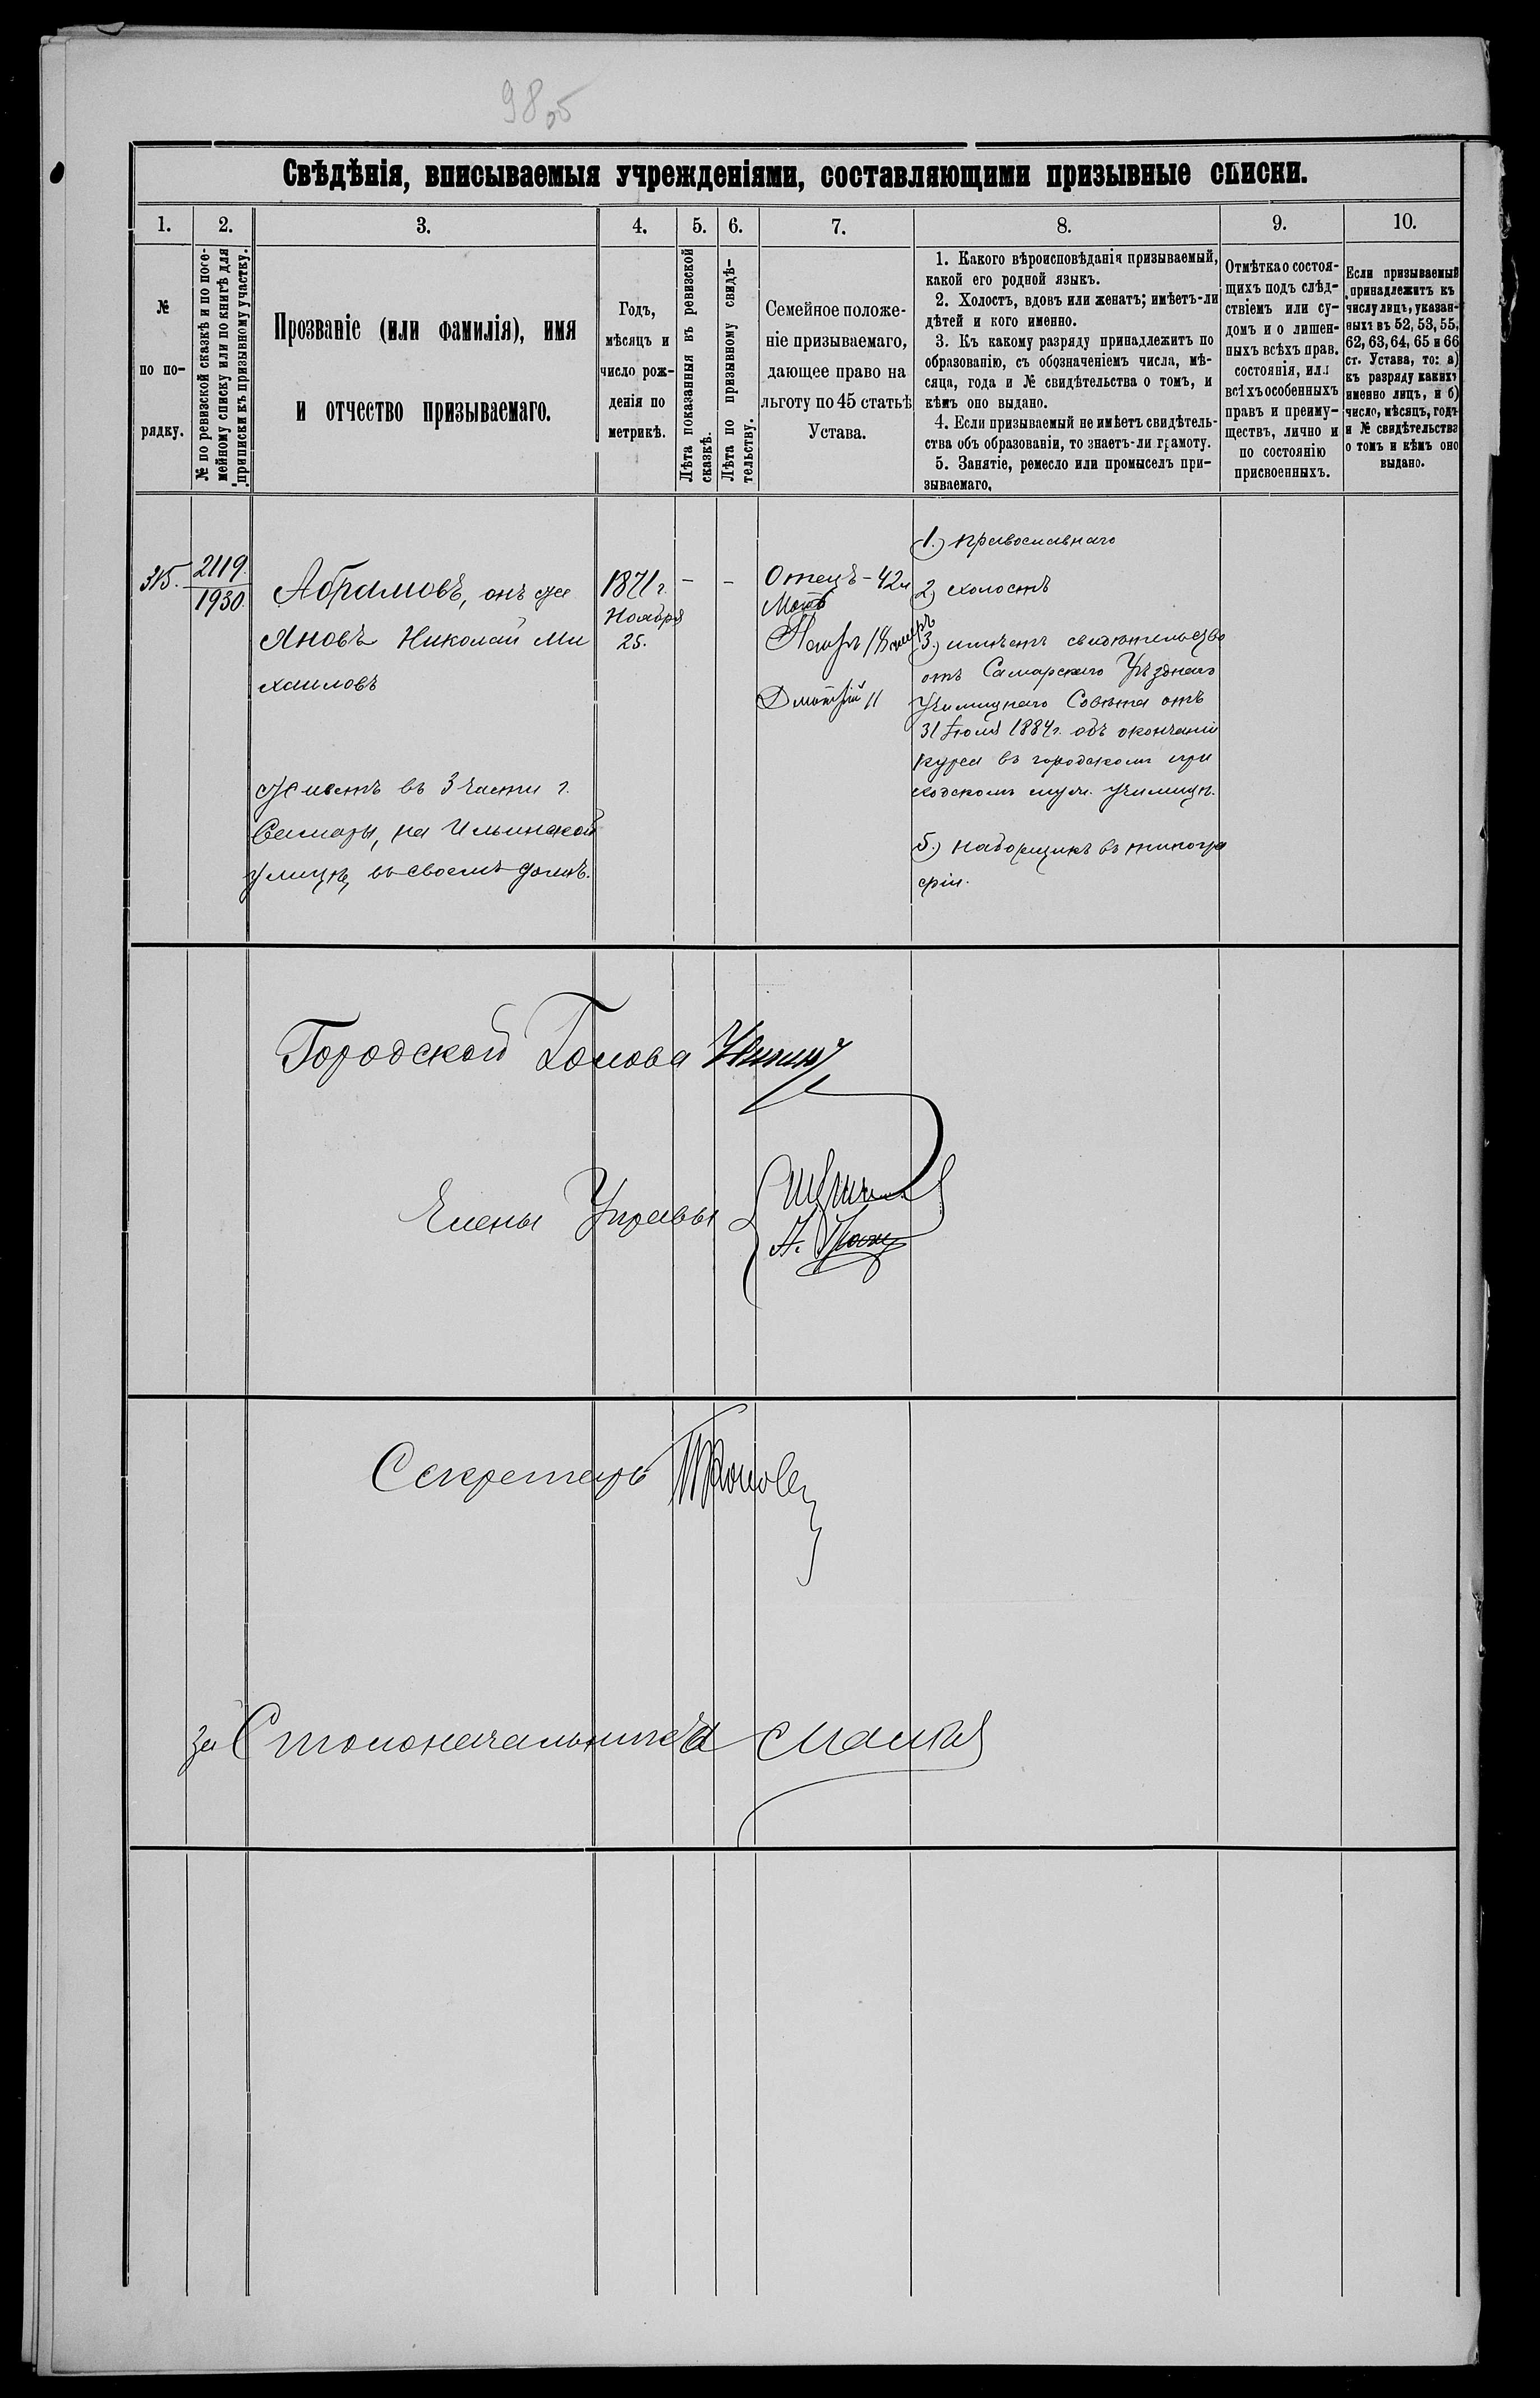 98об
Свѣдѣнія, вписываемыя учрежденіями, составляющими призывные списки.
1.
2.
3.
4.
5.
6.
7.
8.
9.
10.
№
по по-
рядку.
№ по ревизской сказкѣ и по посе-
мейному списку или по книгѣ для
приписки къ призывному участку.
Прозваніе (или фамилія), имя
и отчество призываемаго.
Годъ,
мѣсяцъ и
число рож-
денія по
метрикѣ.
Лѣта показанныя въ ревизской
сказкѣ.
Лѣта по призывному свидѣ-
тельству.
Семейное положе-
ніе призываемаго,
дающее право на
льготу по 45 статьѣ
Устава.
1. Какого вѣроисповѣданія призываемый,
какой его родной языкъ.
2. Холостъ, вдовъ или женатъ; имѣетъ-ли
дѣтей и кого именно.
3. Къ какому разряду принадлежитъ по
образованію, съ обозначеніемъ числа, мѣ-
сяца, года и № свидѣтельства о томъ, и
кѣмъ оно выдано.
4. Если призываемый не имѣетъ свидѣтель-
ства объ образованіи, то знаетъ-ли грамоту.
5. Занятіе, ремесло или промыселъ при-
зываемаго.
Отмѣтка о состоя-
щихъ подъ слѣд-
ствіемъ или су-
домъ и о лишен-
ныхъ всѣхъ прав.
состоянія, или
всѣхъ особенныхъ
правъ и преиму-
ществъ, лично и
по состоянію
присвоенныхъ.
Если призываемый
принадлежитъ къ
числу лицъ, указан-
ныхъ въ 52, 53, 55,
62, 63, 64, 65 и 66
ст. Устава, то: а)
къ разряду какихъ
именно лицъ, и б)
число, мѣсяцъ, годъ
и № свидѣтельства
о томъ и кѣмъ оно
выдано.
315.
2119.
1930.
Абрамовъ, онъ же
Яновъ Николай Ми
хаиловъ
Живетъ въ 3 части г.
Самары, на Ильинской
улицѣ, въ своемъ домѣ.
1871 г.
Ноября
25.
-
-
Отецъ - 42 л
Мать
Петръ 18 умеръ
Дмитрій 11
1.) православнаго
2) холостъ
3.) имѣетъ свидѣтельство
отъ Самарскаго Уѣзднаго
Училищнаго Совѣта отъ
31 Іюля 1884 г. объ окончаніи
курса въ городскомъ при
ходскомъ муж. училищѣ.
5.) наборщикъ въ типогра
фіи.
Городской Голова
Члены Управы
Секретарь
за Столоначальника